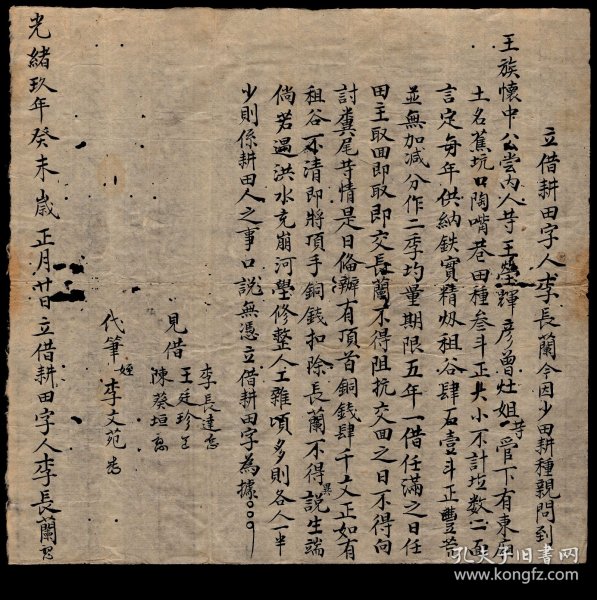 立借耕田字人李長蘭今因少田耕種親問到
王族懷中公嘗內人等王瑩輝彥曾灶姐等管下有東庄
土名蕉坑口陶嘴巷田種叁斗正大小不計坵數二面
言定每年供納鉄實精𬉼租谷肆石壹斗正豐荒
並無加減分作二季均量期限五年一借任滿之日任
田主取回即取即交長蘭不得阻抗交田之日不得向
討糞尾等情是日俻辦有頂首銅錢肆千文正如有
租谷不清即將頂手銅錢扣除長蘭不得異說生端
倘若遇洪水充崩河壆修整人工雜項多則各人一半
少則係耕田人之事口説無憑立借耕田字為據
李長連
見借 王廷珍
陳癸垣
代筆 姪 李文苑
光緒玖年癸未歲正月廿日立借耕田字人李長蘭
孔夫子旧书网
www.kongfz.com